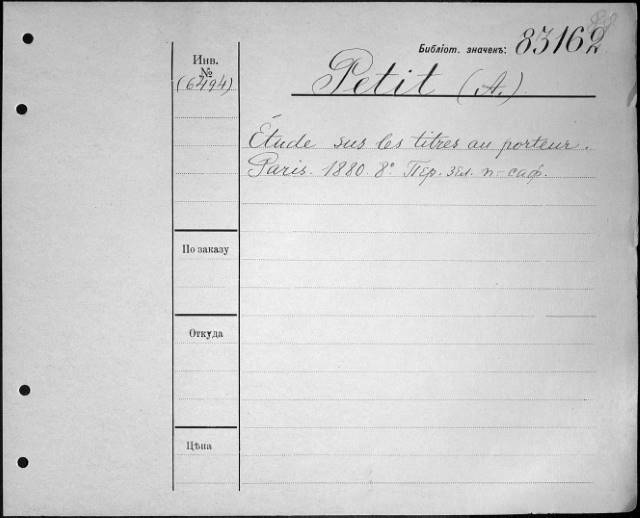 Библіот. значекъ: 83162
Инв.
№
(6494)
Petit (A.)
Étude sur les titres au porteur.
Paris. 1880. 8° Пер. зел. п-саф.
По заказу
Откуда
Цѣна